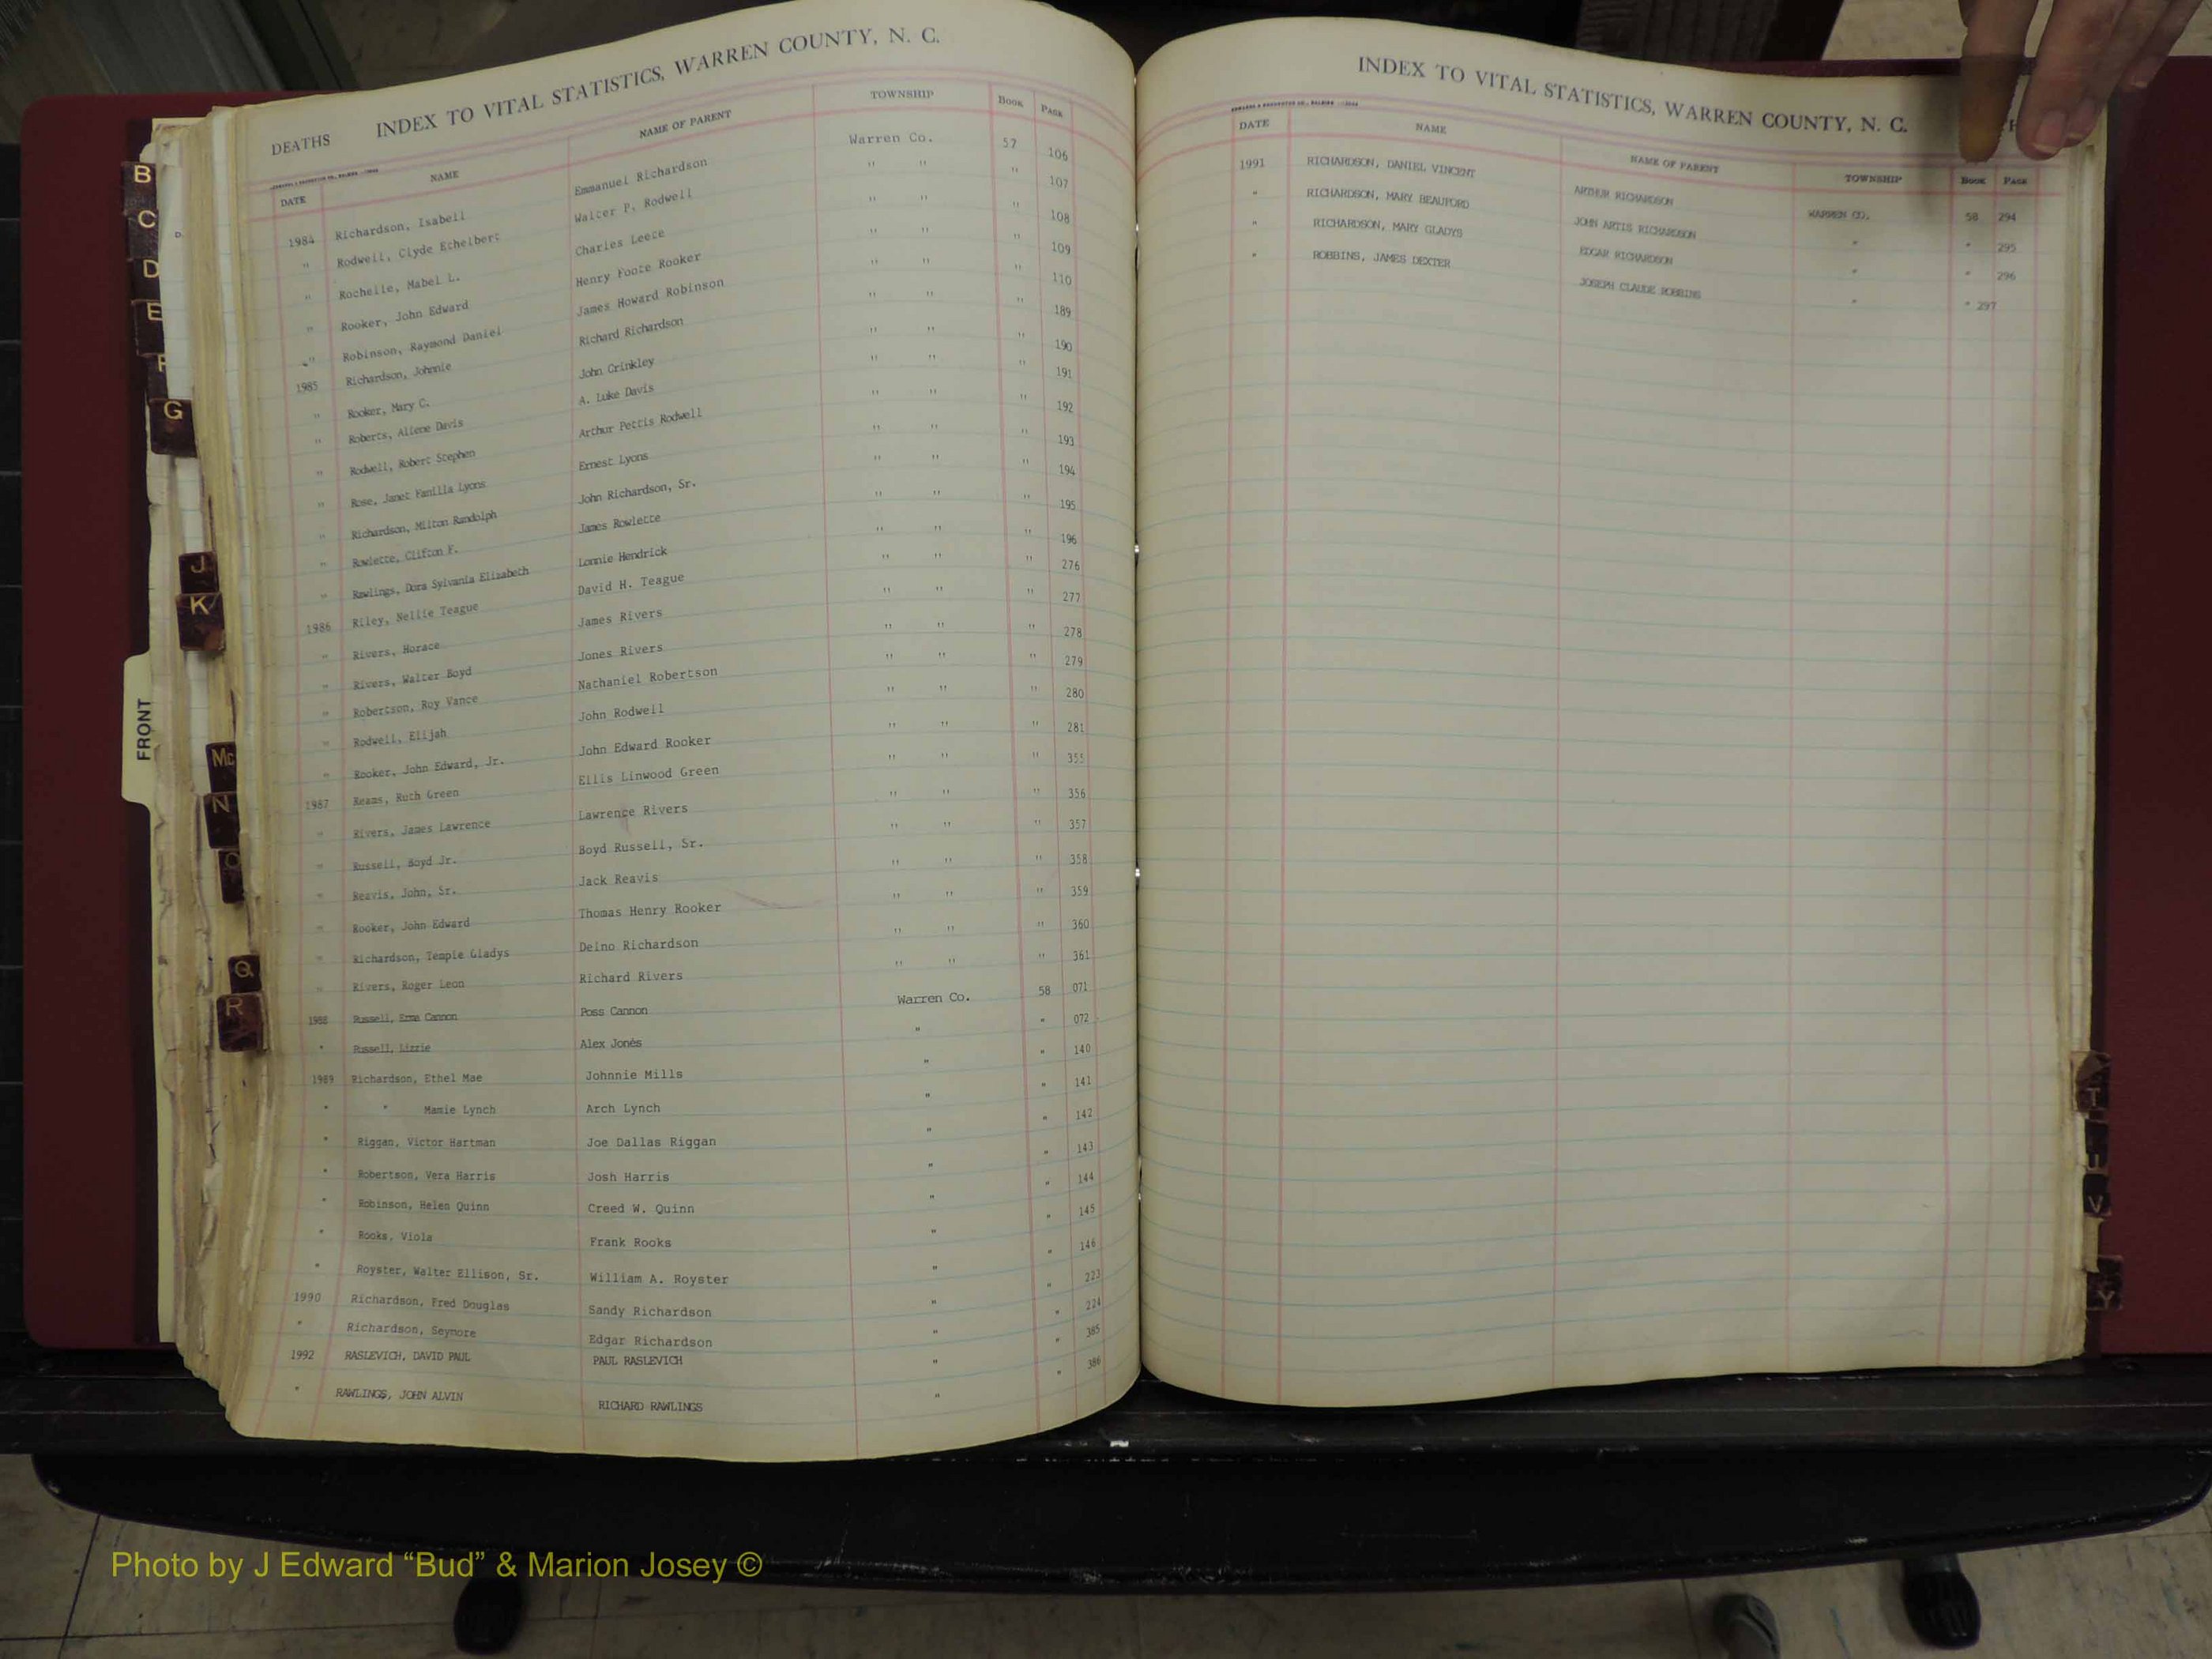 DEATHS INDEX TO VITAL STATISTICS, WARREN COUNTY, N. C.
DATE NAME NAME OF PARENT TOWNSHIP BOOK PAGE
1984 Richardson, Isabell Emmanuel Richardson Warren Co. 57 106
" Rodwell, Clyde Ethelbert Walter P. Rodwell " " " 107
" Rochelle, Mabel L. Charles Leete " " " 108
" Rooker, John Edward Henry Foote Rooker " " " 109
" Robinson, Raymond Daniel James Howard Robinson " " " 110
1985 Richardson, Johnnie Richard Richardson " " " 189
" Rooker, Mary C. John Crinkley " " " 190
" Roberts, Allene Davis A. Luke Davis " " " 191
" Rodwell, Robert Stephen Arthur Pettis Rodwell " " " 192
" Rose, Janet Fanilla Lyons Ernest Lyons " " " 193
" Richardson, Milton Randolph John Richardson, Sr. " " " 194
" Rowlette, Clifton F. James Rowlette " " " 195
" Rawlings, Dora Sylvania Elizabeth Lonnie Hendrick " " " 196
1986 Riley, Nellie Teague David H. Teague " " " 276
" Rivers, Horace James Rivers " " " 277
" Rivers, Walter Boyd Jones Rivers " " " 278
" Robertson, Roy Vance Nathaniel Robertson " " " 279
" Rodwell, Elijah John Rodwell " " " 280
" Rooker, John Edward, Jr. John Edward Rooker " " " 281
1987 Reams, Ruth Green Ellis Linwood Green " " " 355
" Rivers, James Lawrence Lawrence Rivers " " " 356
" Russell, Boyd Jr. Boyd Russell, Sr. " " " 357
" Reavis, John, Sr. Jack Reavis " " " 358
" Rooker, John Edward Thomas Henry Rooker " " " 359
" Richardson, Tempie Gladys Delno Richardson " " " 360
" Rivers, Roger Leon Richard Rivers " " " 361
1988 Russell, Erma Cannon Poss Cannon Warren Co. 58 071
" Russell, Lizzie Alex Jones " " 072
1989 Richardson, Ethel Mae Johnnie Mills " " 140
" " Mamie Lynch Arch Lynch " " 141
" Riggan, Victor Hartman Joe Dallas Riggan " " 142
" Robertson, Vera Harris Josh Harris " " 143
" Robinson, Helen Quinn Creed W. Quinn " " 144
" Rooks, Viola Frank Rooks " " 145
" Royster, Walter Ellison, Sr. William A. Royster " " 146
1990 Richardson, Fred Douglas Sandy Richardson " " 223
" Richardson, Seymore Edgar Richardson " " 224
1992 RASLEVICH, DAVID PAUL PAUL RASLEVICH " " 385
" RAWLINGS, JOHN ALVIN RICHARD RAWLINGS " " 386
INDEX TO VITAL STATISTICS, WARREN COUNTY, N. C.
DATE NAME NAME OF PARENT TOWNSHIP BOOK PAGE
1991 RICHARDSON, DANIEL VINCENT ARTHUR RICHARDSON WARREN CO. 58 294
" RICHARDSON, MARY BEAUFORD JOHN ARTIS RICHARDSON " " 295
" RICHARDSON, MARY GLADYS EDGAR RICHARDSON " " 296
" ROBBINS, JAMES DEXTER JOSEPH CLAUDE ROBBINS " " 297
B
C
D
E
F
G
J
K
FRONT
Mc
N
O
Q
R
T
U
V
Y
Photo by J Edward “Bud” & Marion Josey ©